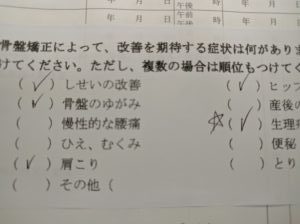 年 月 日 午前 午後 時
年 月
骨盤矯正によって、改善を期待する症状は何がありま
けてください。ただし、複数の場合は順位もつけてく
(✓) しせいの改善 (✓) ヒップ
(✓) 骨盤のゆがみ ( ) 産後の
( ) 慢性的な腰痛 ☆(✓) 生理
( ) ひえ、むくみ ( ) 便秘
(✓) 肩こり ( ) とり
( ) その他 (